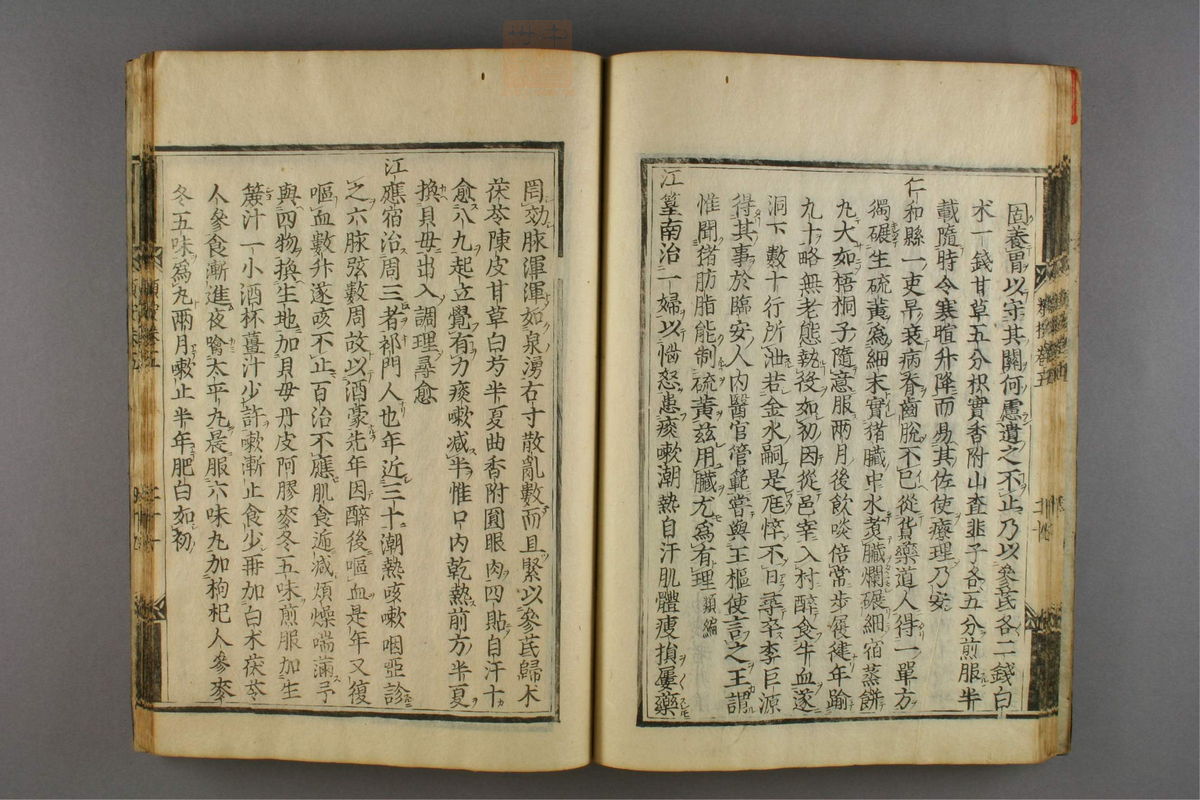 固養胃以守其關何慮遺之不止乃以參芪各二錢白
朮一錢甘草五分枳實香附山査韭子各五分煎服半
載隨時令寒暄升降而易其佐使療理乃安
仁和縣一吏早衰病脊齒脫不已從貨藥道人得一單方
獨碾生硫黃爲細末實猪臟中水煮臟爛碾細宿蒸餅
丸大如梧桐子隨意服兩月後飲啖倍常步履徤年踰
九十略無老態執役如初因從邑宰入村醉食牛血遂
洞下數十行所泄若金水嗣是尫悴不日尋卒李巨源
得其事於臨安人内醫官管範嘗與王樞使言之王謂
惟聞猪肪脂能制硫黃茲用臟尤爲有理 類編
江篁南治一婦以惱怒患痰嗽潮熱自汗肌體瘦損屢藥
罔効脉渾渾如泉湧右寸散亂數而且緊以參芪歸朮
茯苓陳皮甘草白芍半夏曲香附圓眼肉四貼自汗十
愈八九起立覺有力痰嗽减半惟口内乾熱前方半夏
換貝母出入調理尋愈
江應宿治周三者祁門人也年近三十潮熱咳嗽咽啞診
之六脉弦數周故以酒豪先年因醉後嘔血是年又復
嘔血數升遂咳不止百治不應肌食遞减煩燥喘滿予
與四物換生地加貝母丹皮阿膠麥冬五味煎服加生
蔗汁一小酒杯薑汁少許嗽漸止食少再加白朮茯苓
人參食漸進夜噙太平丸晨服六味丸加枸杞人參麥
冬五味爲丸兩月嗽止半年肥白如初